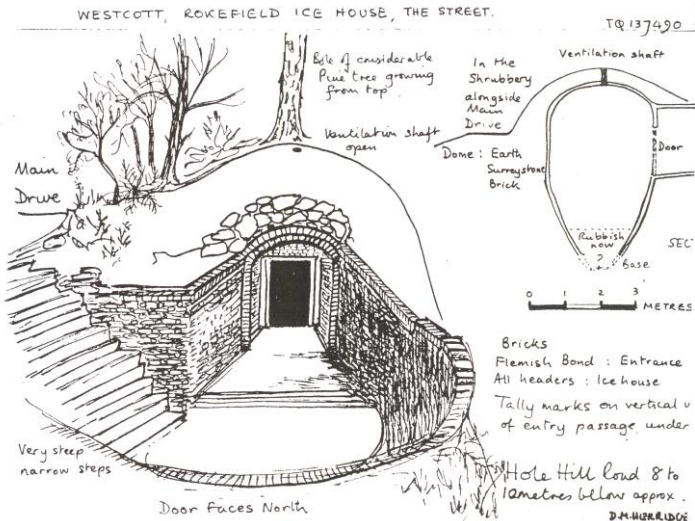 WESTCOTT, ROKEFIELD ICE HOUSE, THE STREET.
TQ 137490
Bole of considerable
Pine tree growing
from top
Ventilation shaft
open
Main
Drive
In the
Shrubbery
alongside
Main
Drive
Dome : Earth
Surreystone
Brick
Ventilation shaft
Door
Rubbish
now
?
Base
SEC
0 1 2 3
METRES
Bricks
Flemish Bond : Entrance
All headers : Icehouse
Tally marks on vertical
of entry passage under
Very steep
narrow steps
Door faces North
Hole Hill Road 8 to
10metres below approx.
D.M.HERRIDGE